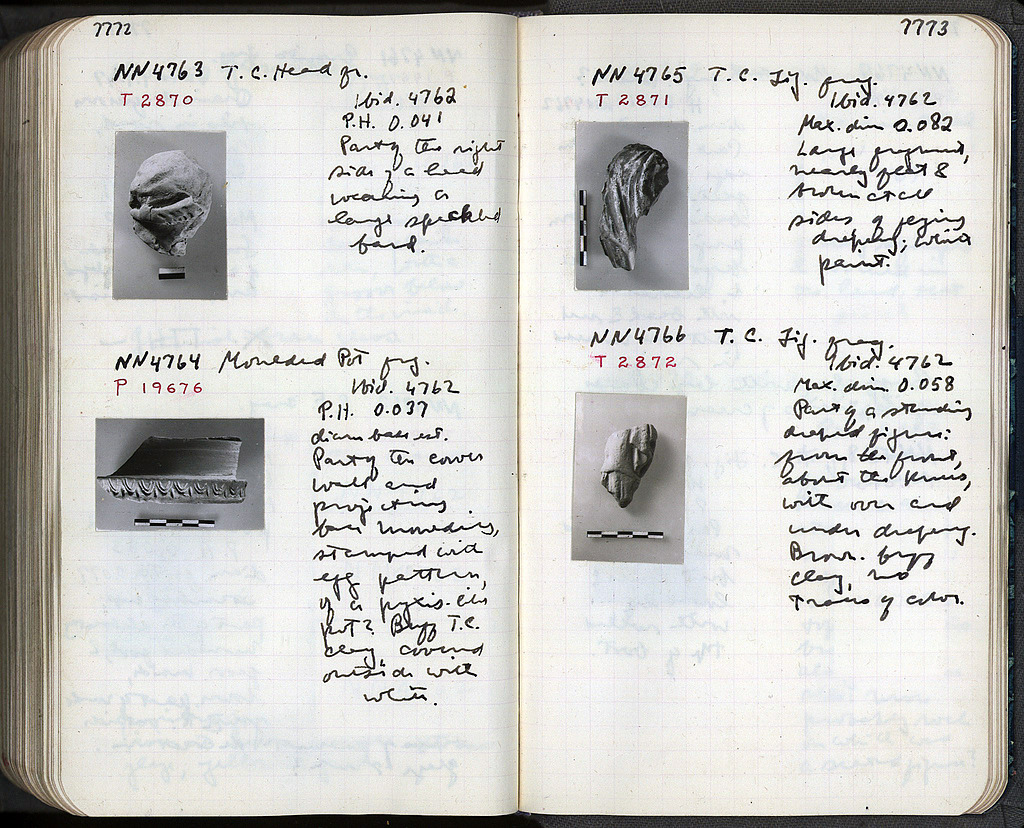 7772
NN4763 T.C. Head fr.
T 2870
Ibid. 4762
P.H. 0.041
Part of the right
side of a head
wearing a
large speckled
band.
NN4764 Moulded Pot frg.
P 19676
Ibid. 4762
P.H. 0.037
diam base est.
Part of the lower
wall and
projecting
base moulding,
stamped with
egg pattern,
of a pyxis-like
pot? Buff T.C.
clay covered
outside with
white.
7773
NN4765 T.C. Fig. frag.
T 2871
Ibid. 4762
Max. dim 0.082
Large fragment,
nearly flat &
broken at all
sides of flying
drapery; white
paint.
NN4766 T.C. Fig. frag.
T 2872
Ibid. 4762
Max. dim. 0.058
Part of a standing
draped figure:
from the front,
about the knees,
with over and
under drapery.
Brown-buff
clay, no
traces of color.